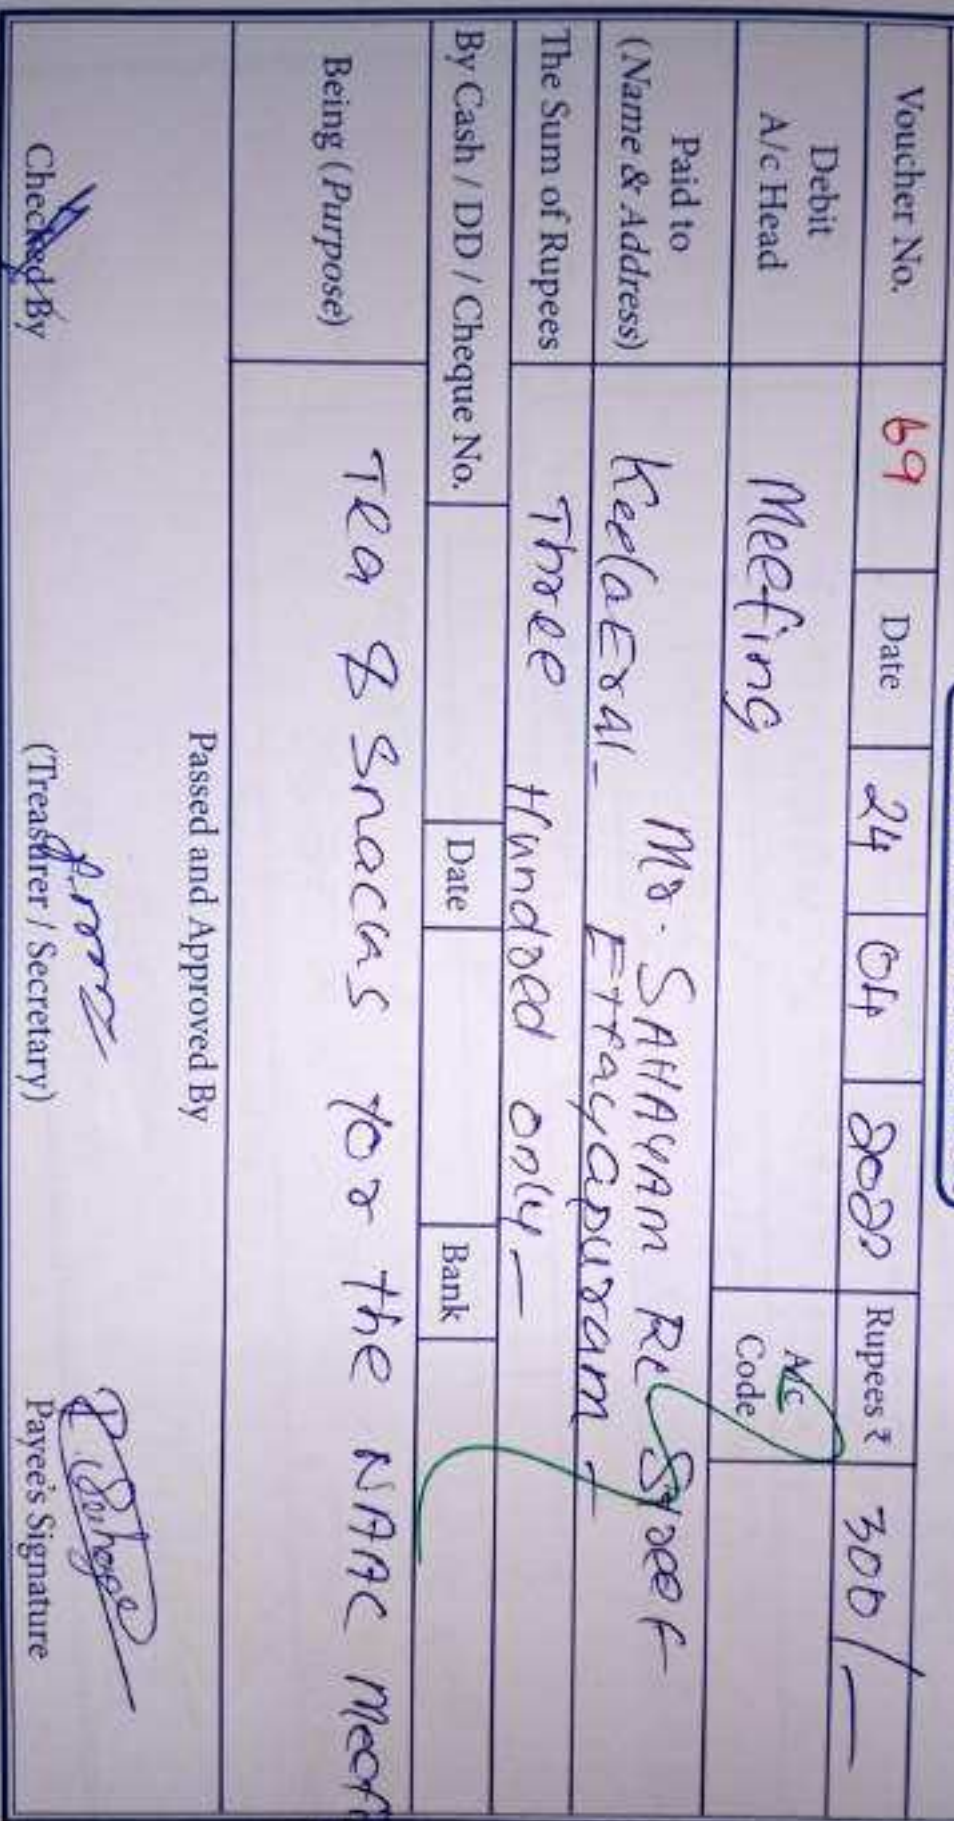 Voucher No. 69 Date 24 04 2022 Rupees ₹ 300/-
Debit
A/c Head Meeting A/c
Code
Paid to
(Name & Address) Mr. SAHAYAM RC Street
Keela Eral - Ettayapuram -
The Sum of Rupees Three Hundred only -
By Cash / DD / Cheque No. Date Bank
Being (Purpose) Tea & Snacks for the NAAC Meet
Passed and Approved By
Checked By (Treasurer / Secretary) Payee's Signature